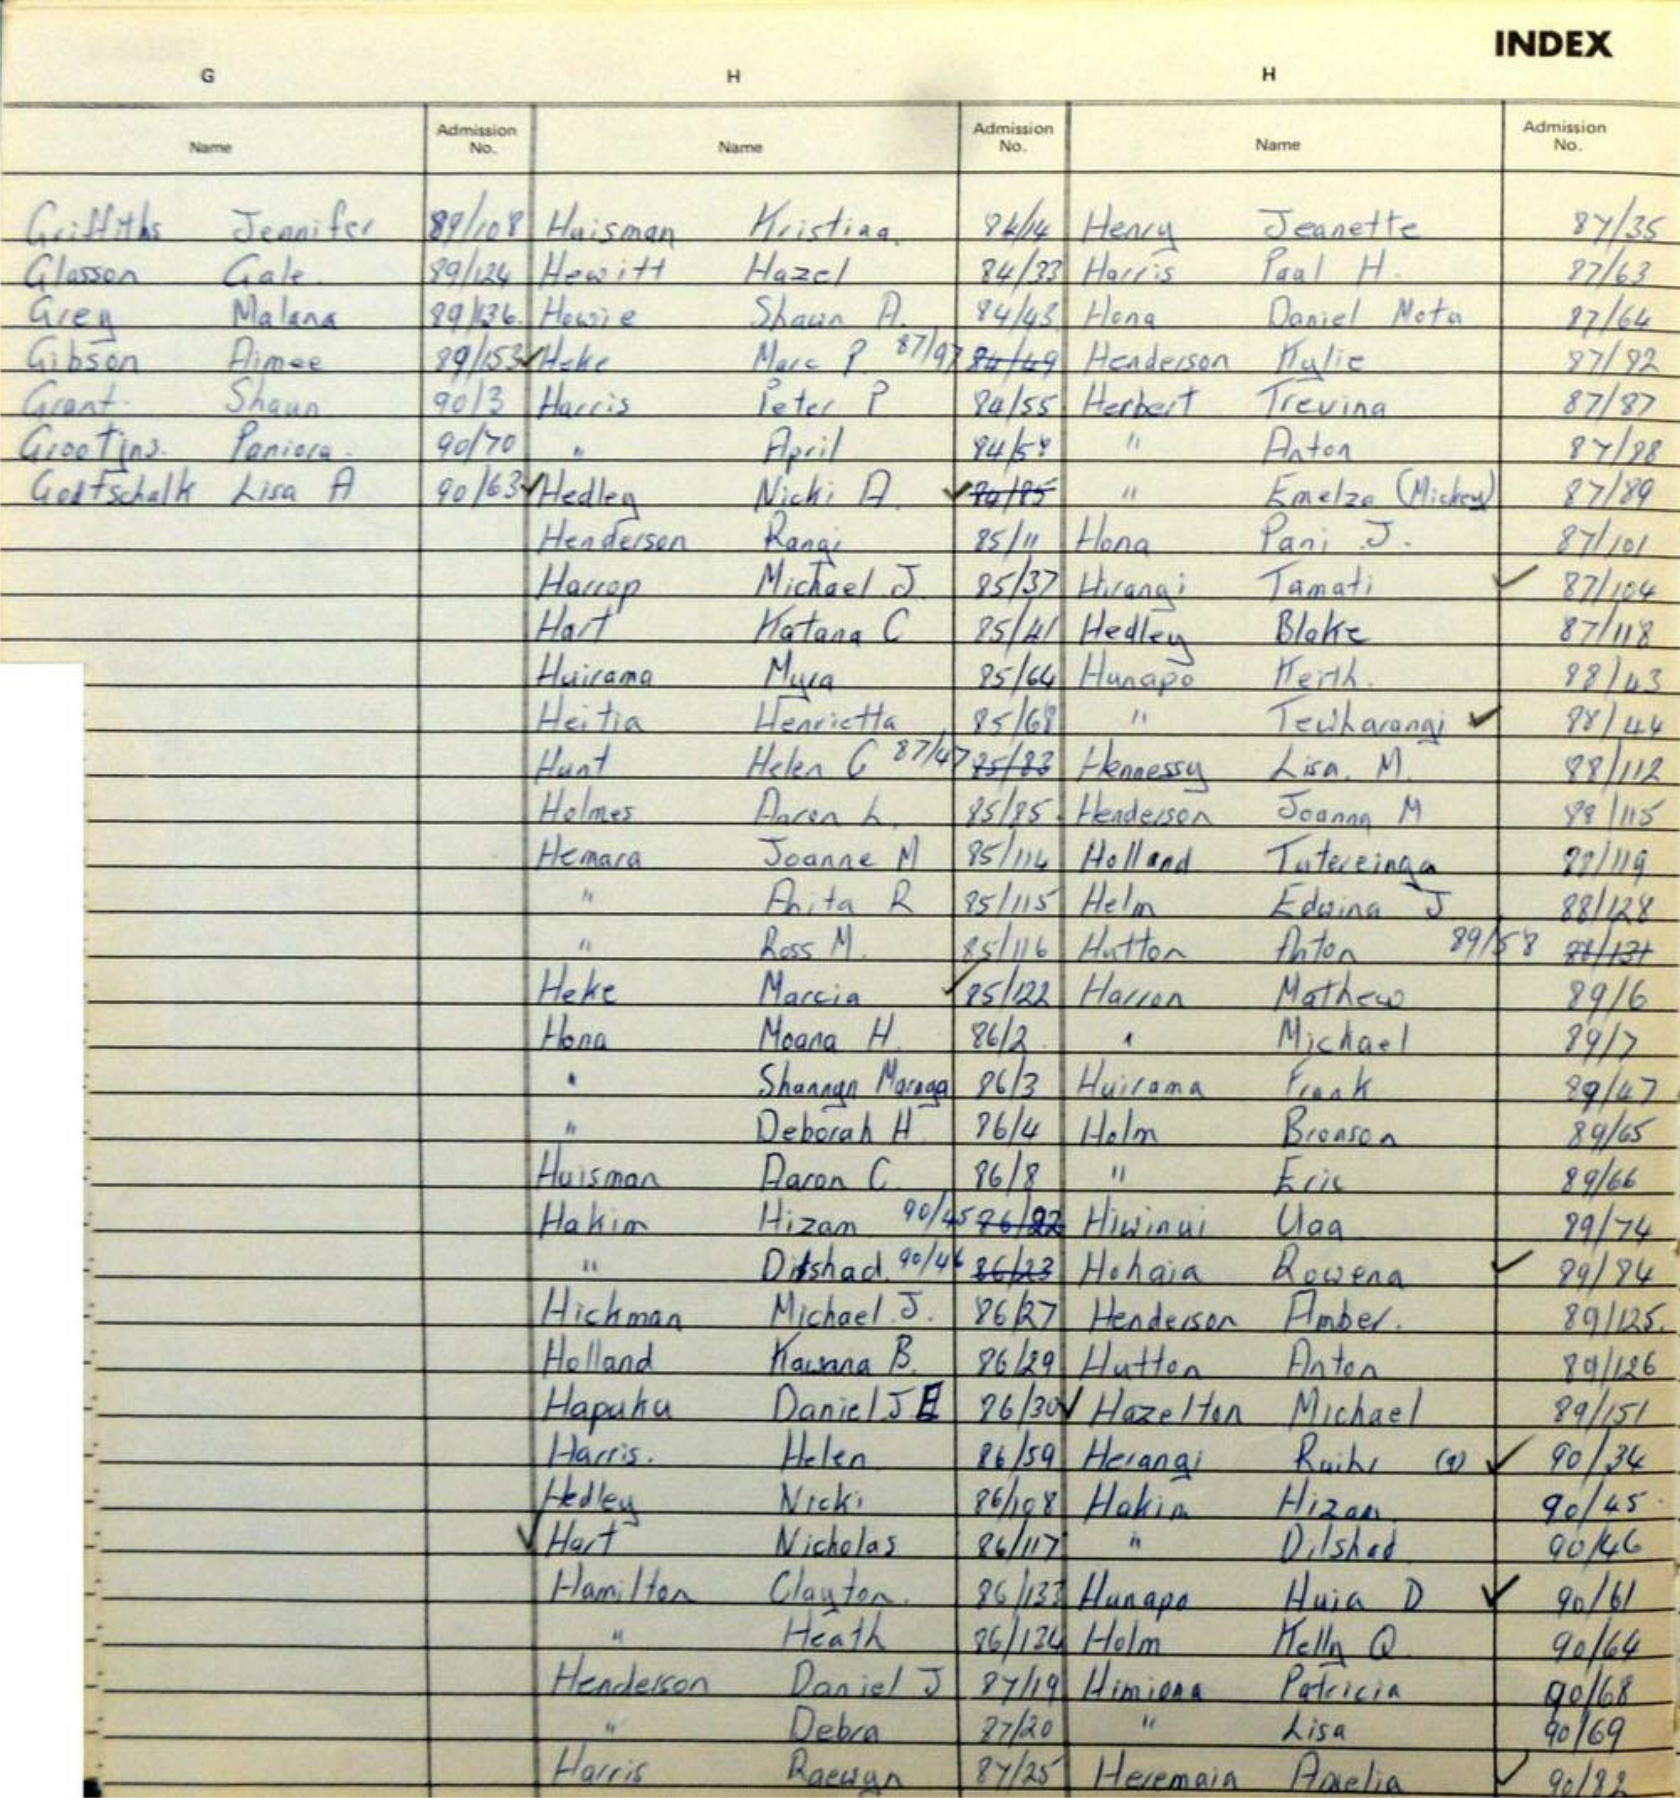 INDEX
G H H
Name Admission No. Name Admission No. Name Admission No.
Griffiths Jennifer 89/108 Huisman Kristina. 84/14 Henry Jeanette 87/35
Glasson Gale 89/124 Hewitt Hazel 84/33 Harris Paul H. 87/63
Grey Malana 89/136. Howie Shaun A. 84/43 Hona Daniel Motu 87/64
Gibson Aimee 89/153 ✓ Heke Marc P 87/97 84/49 Henderson Kylie 87/82
Grant Shaun 90/3 Harris Peter P 84/55 Herbert Trevina 87/87
Grootjns. 90/70 " April 84/58 " Anton 87/88
Gottschalk Lisa A 90/63 ✓ Hedley Nicki A. ✓ 84/85 " Emelza (Mickey) 87/89
Henderson Rangi 85/11 Hona Pani J. 87/101
Harrop Michael J. 85/37 Hirangi Tamati ✓ 87/104
Hart Katana C 85/41 Hedley Blake 87/118
Huirama Myra 85/64 Hunapo Keith. 88/43
Heitia Henrietta 85/68 " Tewharangi ✓ 88/44
Hunt Helen G 87/47 85/83 Hennessy Lisa. M. 88/112
Holmes Aaron L. 85/85 Henderson Joanna M 88/115
Hemara Joanne M 85/114 Holland Tutereinga 88/119
" Anita R 85/115 Helm Edwina J 88/128
" Ross M. 85/116 Hutton Anton 89/58 88/131
Heke Marcia ✓ 85/122 Harron Mathew 89/6
Hona Moana H. 86/2 " Michael 89/7
" Shannyn 86/3 Huirama Frank 89/47
" Deborah H 86/4 Holm Bronson 89/65
Huisman Aaron C. 86/8 " Eric 89/66
Hakim Hizam 90/45 86/22 Hiwinui Uaa 89/74
" Dilshad. 90/46 86/23 Hohaia Rowena ✓ 89/84
Hickman Michael J. 86/27 Henderson Amber. 89/125.
Holland Kawana B. 86/29 Hutton Anton 89/126
Hapuku Daniel J E 86/30 ✓ Hazelton Michael 89/151
Harris. Helen 86/59 Herangi Ruihi (9) ✓ 90/34
Hedley Nicki 86/108 Hakim Hizam 90/45
✓ Hart Nicholas 86/117 " Dilshad 90/46
Hamilton Clayton. 86/133 Hunapo Huia D ✓ 90/61
" Heath 86/134 Holm Kelly Q 90/64
Henderson Daniel J 87/19 Himiona Patricia 90/68
" Debra 87/20 " Lisa 90/69
Harris Raewyn 87/25 Heremaia Amelia ✓ 90/82